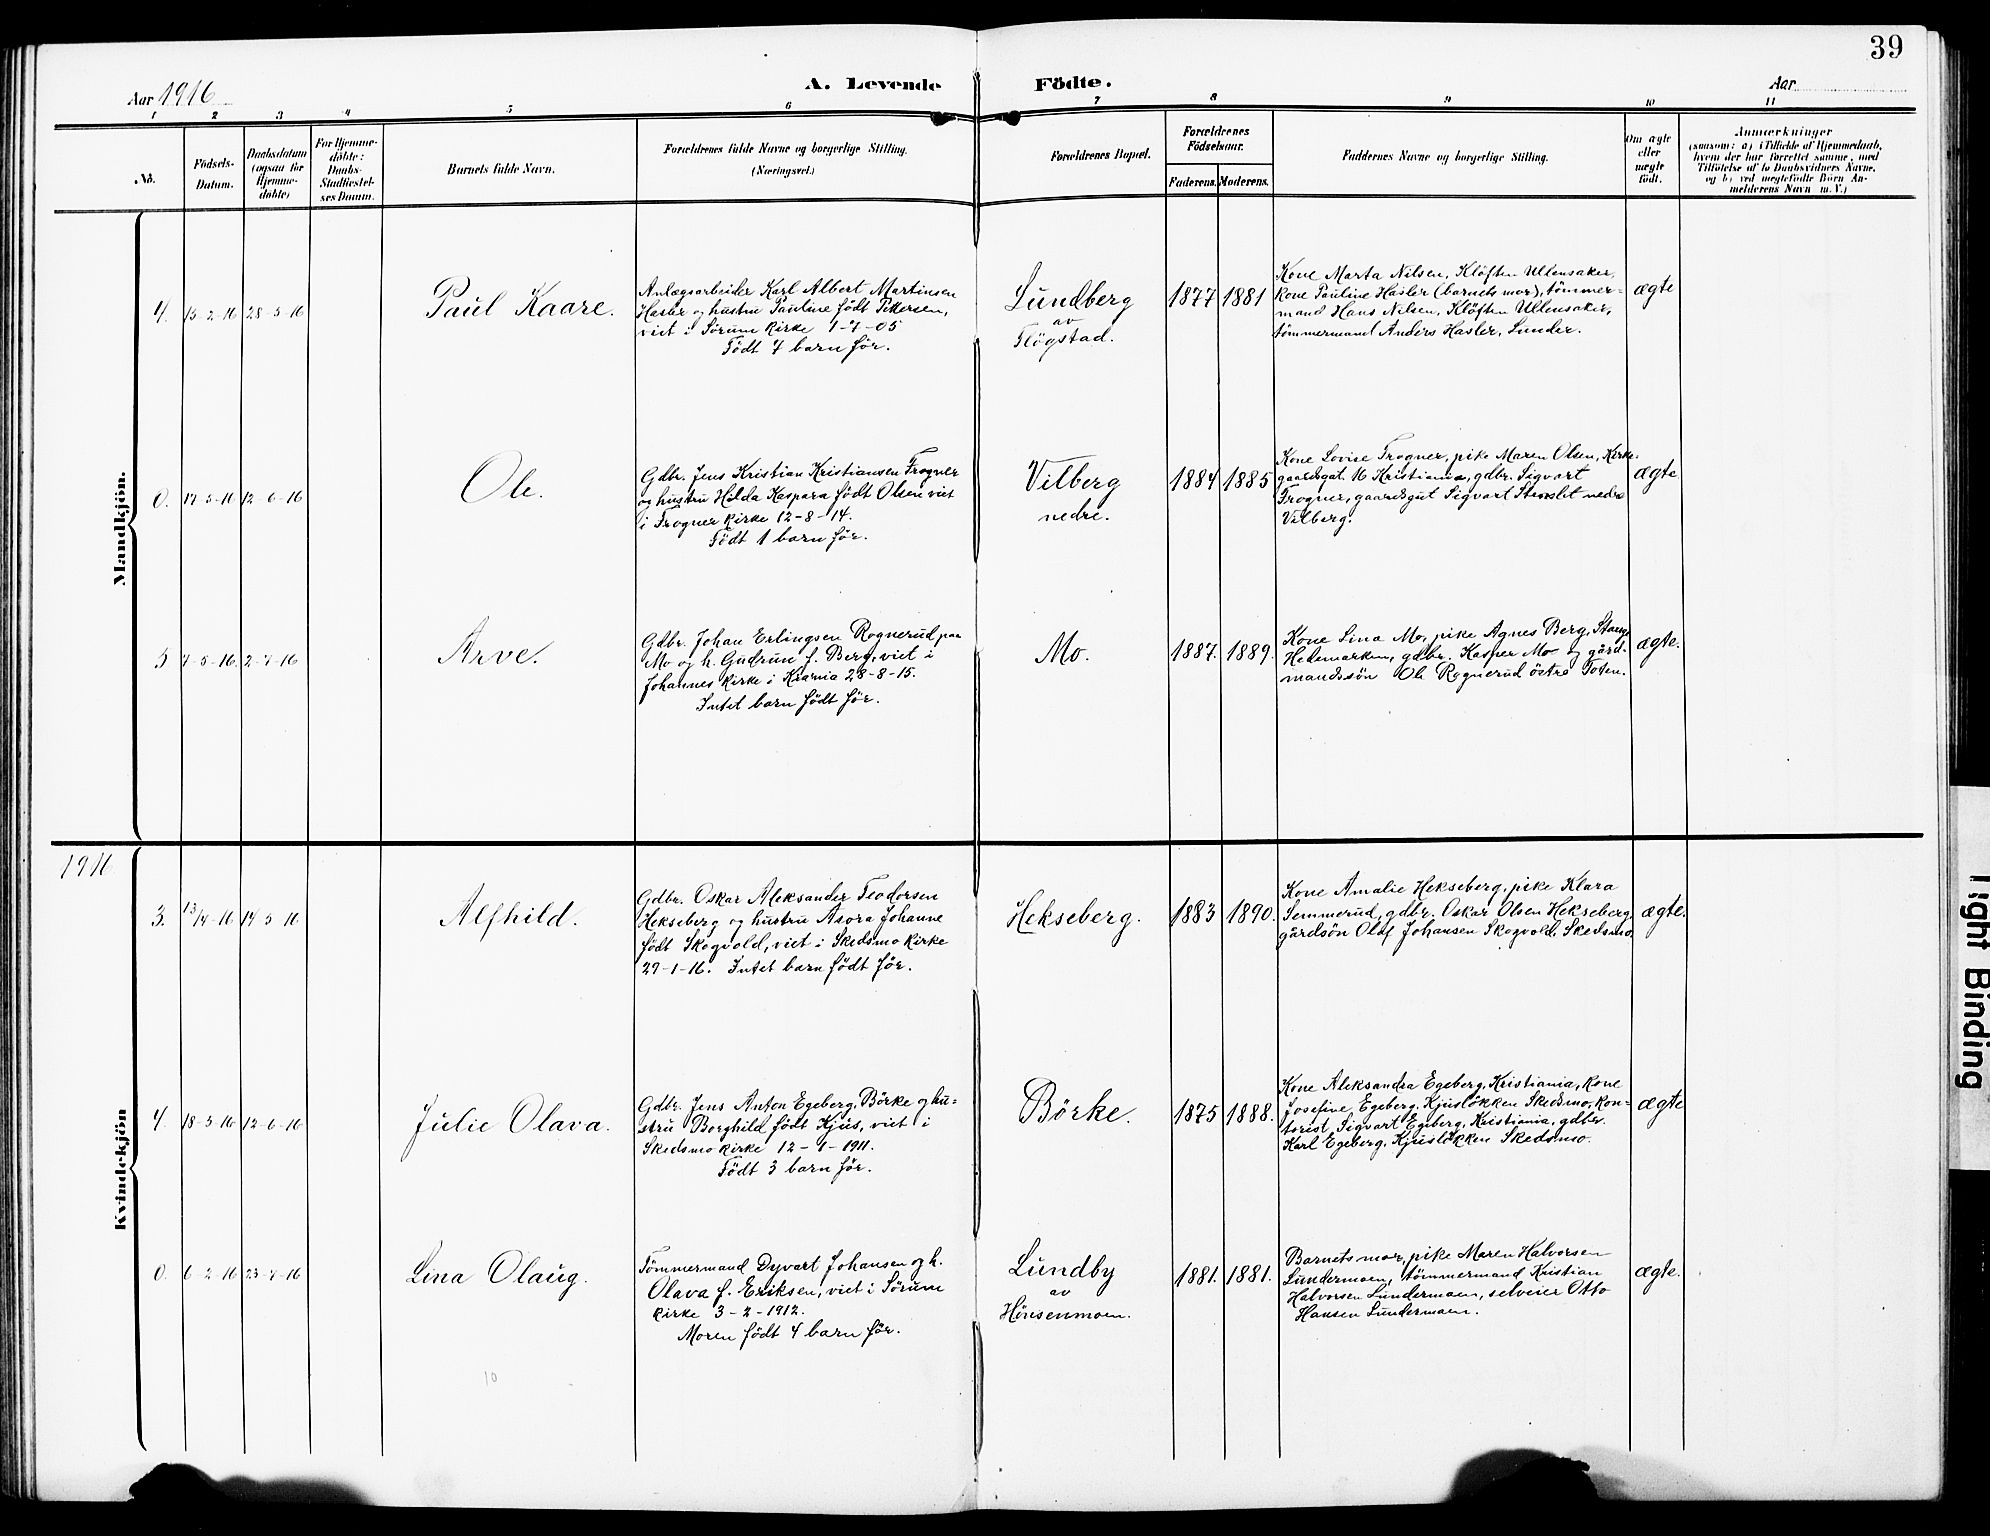 39
Aar 1916
A. Levende Födte.
Aar
1 2 3 4 5 6 7 8 9 10 11
No.
Födsels-
Datum.
Daabsdatum
(ogsaa for
Hjemme-
döbte)
For Hjemme-
döbte:
Daabs-
Stadfæstel-
ses Datum.
Barnets fulde Navn.
Forældrenes fulde Navne og borgerlige Stilling.
(Næringsvei.)
Forældrenes Bopæl.
Forældrenes
Födselsaar.
Faderens. Moderens.
Faddernes Navne og borgerlige Stilling.
Om ægte
eller
uægte
födt.
Anmærkninger
(saasom: a) i Tilfælde af Hjemmedaab,
hvem der har forrettet samme, med
Tilföielse af to Daabsvidners Navne,
og b) ved uægtefödte Börn An-
melderens Navn m. V.)
Mandkjön.
4. 15-2-16 28-5-16
Paul Kaare.
Anlægsarbeider Karl Albert Martinsen
Hasler og hustru Pauline født Pettersen,
viet i Sørum kirke 1-7-05
Födt 4 barn för.
Lundberg
av
Flögstad.
1877 1881
Kone Marta Nilsen, Klöften Ullensaker,
kone Pauline Hasler (barnets mor), tömmer-
mand Hans Nilsen, Klöften Ullensaker,
tömmermand Anders Hasler, Lunder.
ægte
0. 17-5-16 12-6-16
Ole.
Gdbr. Jens Kristian Kristiansen Frogner
og hustru Hilda Kaspara født Olsen viet
i Frogner kirke 12-8-14.
Födt 1 barn för.
Vilberg
nedre.
1884 1885
Kone Lovise Frogner, pike Maren Olsen, Kirke-
gaardsgat. 16 Kristiania, gdbr. Sigvart
Frogner, gaardsgut Sigvart nedre
Vilberg.
ægte
5 7-5-16. 2-7-16
Arve.
Gdbr. Johan Erlingsen Rognerud paa
Mo og h. Gudrun f. Berg, viet i
Johannes kirke i Krania 28-8-15.
Intet barn födt för.
Mo.
1887. 1889.
Kone Lina Mo, pike Agnes Berg, Stange
Hedemarken, gdbr. Kasper Mo og gård-
mandssön Ole Rognerud östre Toten.
ægte.
1916
Kvindekjön
3. 13/4-16 14-5-16
Alfhild.
Gdbr. Oskar Aleksander Teodorsen
Hekseberg og hustru Asora Johanne
født Skogvold, viet i Skedsmo kirke
29-1-16. Intet barn födt för.
Hekseberg.
1883 1890.
Kone Amalie Hekseberg, pike Klara
Semmerud, gdbr. Oskar Olsen Hekseberg,
gårdsön Olaf Johansen Skogvold, Skedsmo.
ægte.
4. 18-3-16 12-6-16
Julie Olava.
Gdbr. Jens Anton Egeberg, Börke og hu-
stru Borghild født Kjus, viet i
Skedsmo kirke 12-1-1911.
Födt 3 barn för.
Börke.
1875 1888.
Kone Aleksandra Egeberg, Kristiania, kone
Josefine Egeberg, Kjuslökken Skedsmo, kon-
torist Sigvart Egeberg, Kristiania, gdbr.
Karl Egeberg, Kjuslökken Skedsmo.
ægte
0. 6-2-16 23-7-16
Lina Olaug.
Tömmermand Dyvart Johansen og h.
Olava f. Eriksen, viet i Sörum
kirke 3-2-1912.
Moren födt 4 barn för.
Lundby
av
Hönsenmoen.
1881. 1881.
Barnets mor, pike Maren Halvorsen
Lundermoen, tömmermand Kristian
Halvorsen Lundermoen, selveier Otto
Hansen Lundermoen.
ægte.
10
Tight Binding